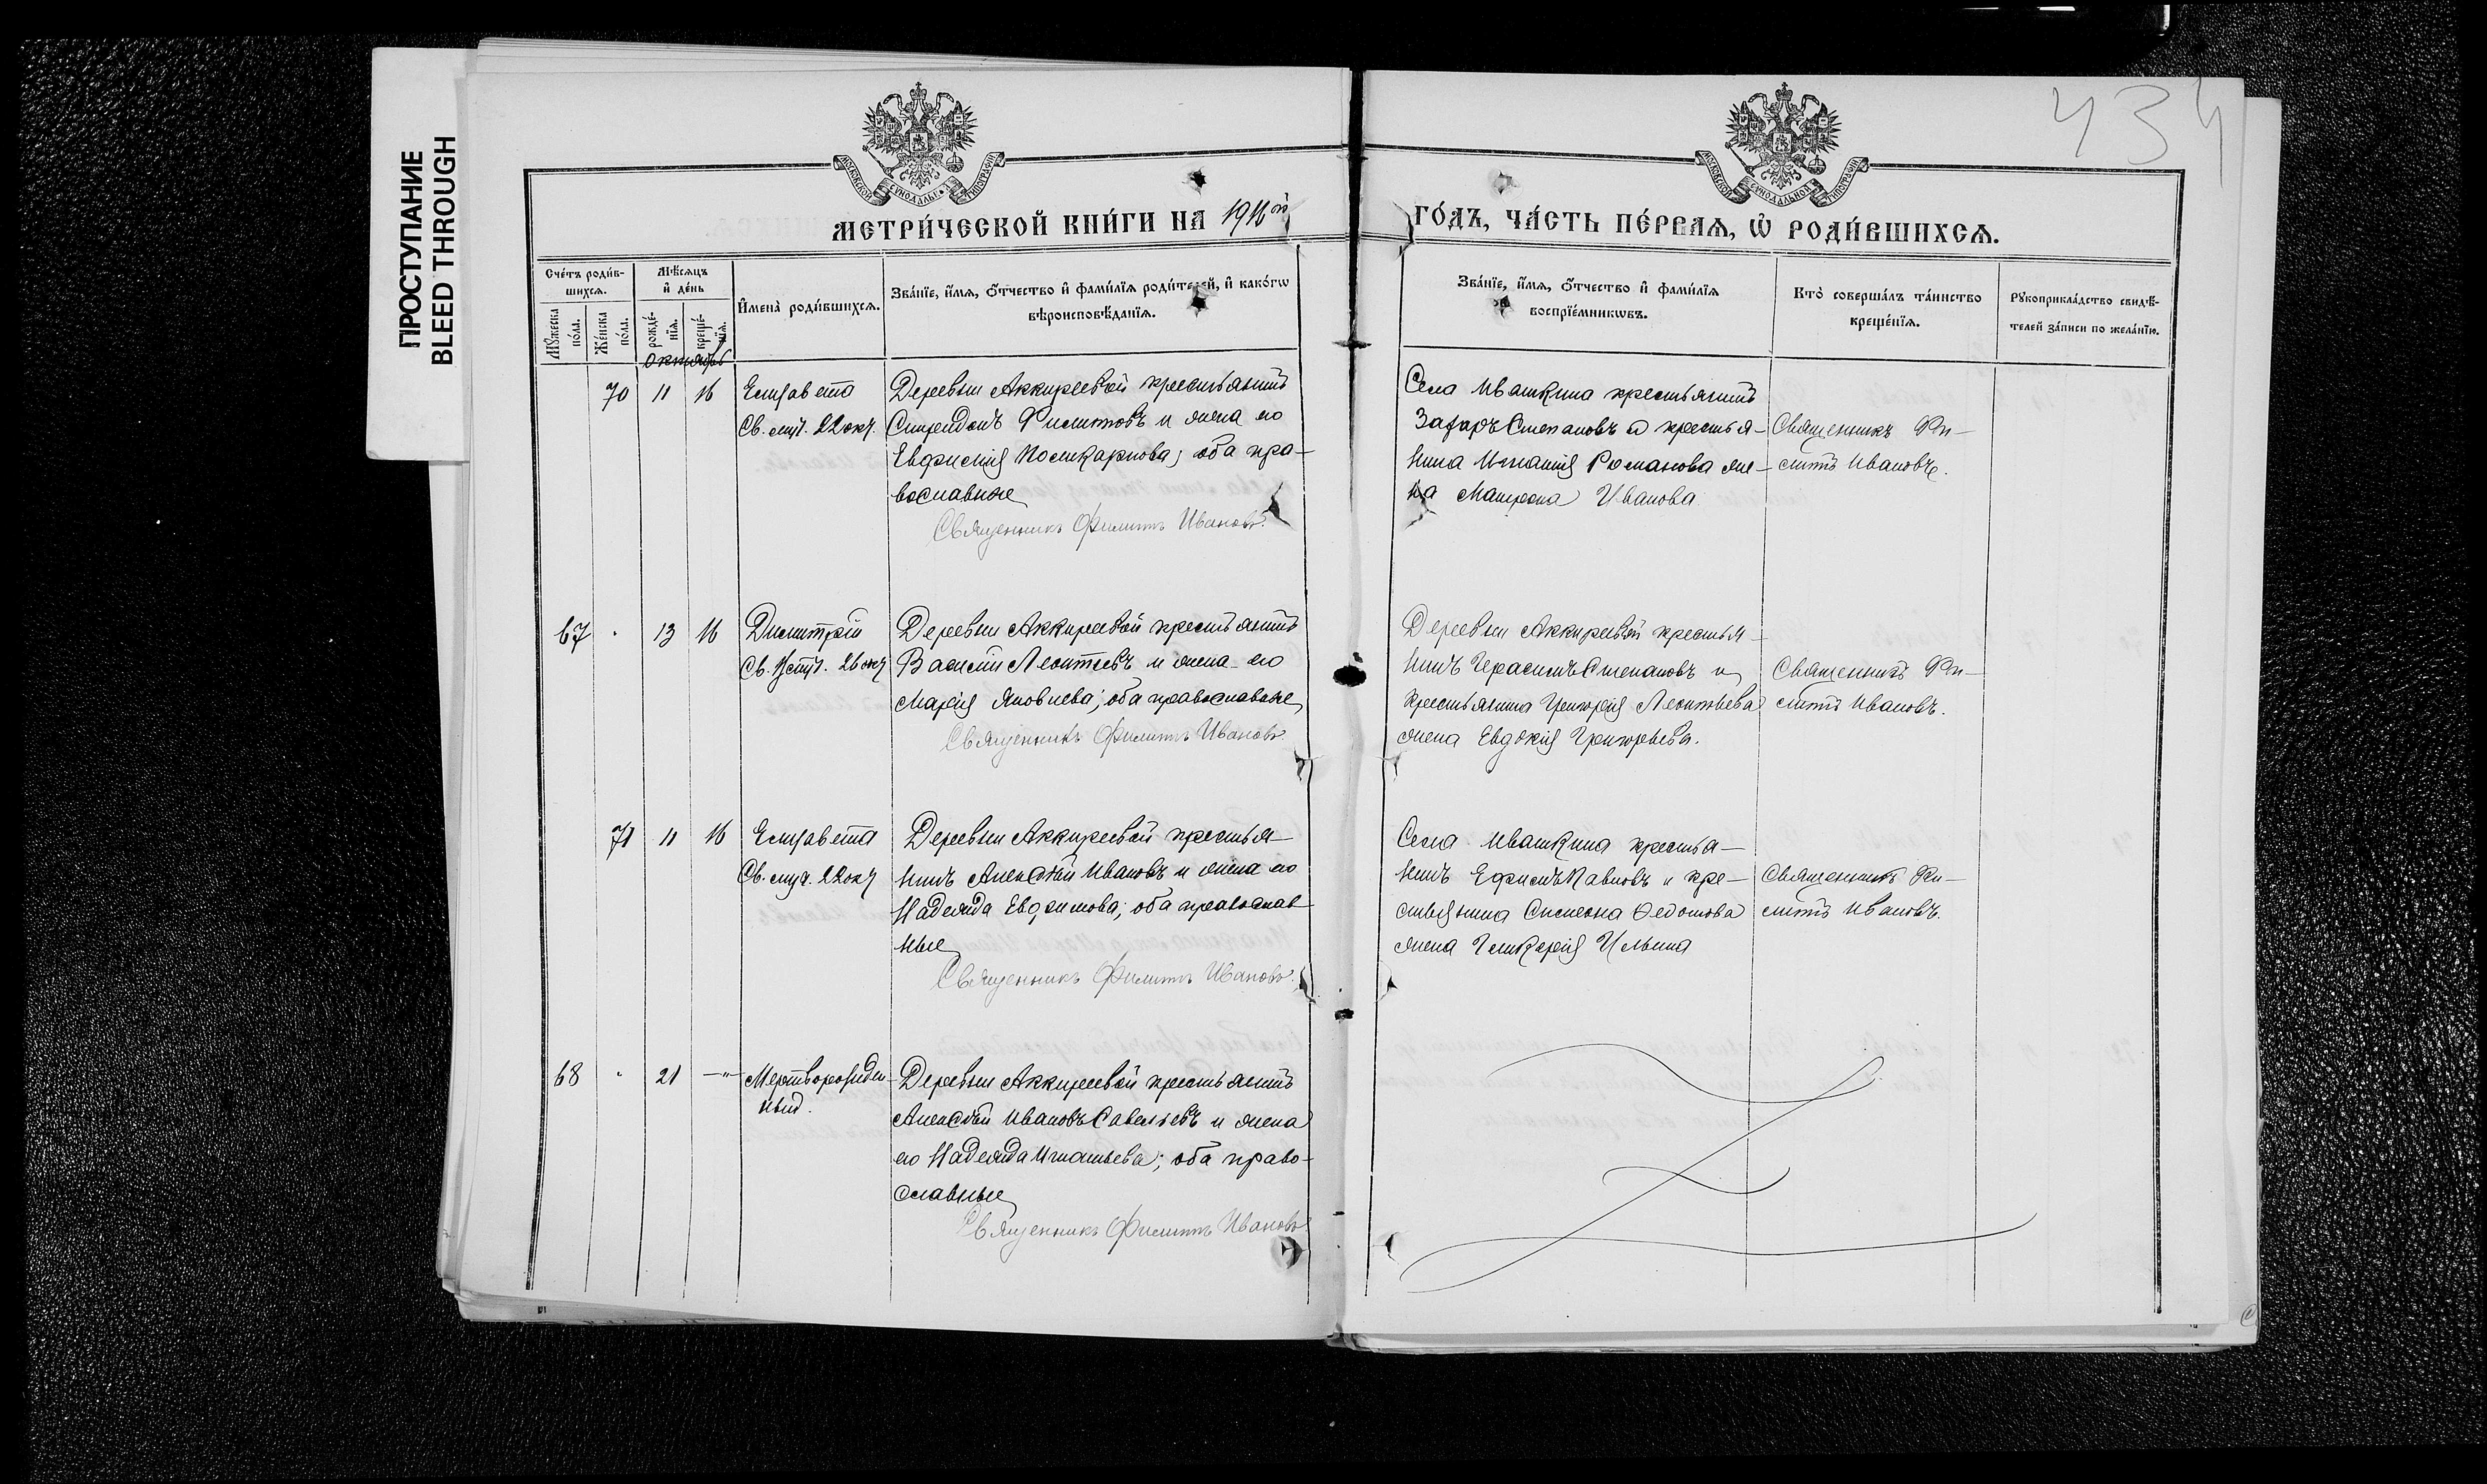 ПРОСТУПАНИЕ
BLEED THROUGH
434
МОСКОВСКОЙ СѴНОДАЛЬНОЙ ТИПОГРАФІИ
МОСКОВСКОЙ СѴНОДАЛЬНОЙ ТИПОГРАФІИ
МЕТРИ́ЧЕСКОЙ КНИ́ГИ НА 1916й
ГО́ДЪ, ЧА́СТЬ ПЕ́РВАЯ, Ѡ҆ РОДИ́ВШИХСЯ.
Сче́тъ роди́в-
шихся.
Мꙋ́жеска по́ла.
Же́нска по́ла.
Мѣ́сяцъ
и҆ де́нь
рожде́-
нїя.
креще́-
нїя.
И҆мена̀ роди́вшихся.
Зва́нїе, и҆́мя, ѻ҆́тчество и҆ фами́лїя роди́телей, и҆ како́гѡ
вѣроисповѣ́данїя.
Зва́нїе, и҆́мя, ѻ҆́тчество и҆ фами́лїя
воспрїе́мникѡвъ.
Кто̀ соверша́лъ та́инство
креще́нїя.
Рꙋкоприкла́дство свидѣ́-
телей за́писи по жела́нїю.
октябрь
70 11 16 Елизавета
Св. муч. 22 окт.
Деревни Аккиреевой крестьянинъ
Спиридонъ Филиповъ и жена его
Евфимія Поликарпова; оба пра-
вославные
Священникъ Филиппъ Ивановъ.
Села Ивашкина крестьянинъ
Захаръ Степановъ и крестья-
нина Игнатія Романова же-
на Матрона Иванова
Священникъ Фи-
липпъ Ивановъ.
67 " 13 16 Димитрій
Св. 26 окт
Деревни Аккиреевой крестьянинъ
Василій Леонтьевъ и жена его
Марія Яковлева; оба православные
Священникъ Филиппъ Ивановъ
Деревни Аккиреевой крестья-
нинъ Герасимъ Степановъ и
крестьянина Григорія Леонтьева
жена Евдокія Григорьева.
Священникъ Фи-
липпъ Ивановъ.
71 11 16 Елизавета
Св. муч. 22 окт
Деревни Аккиреевой крестья-
нинъ Алексѣй Ивановъ и жена его
Надежда Евдокимова; оба православ-
ные
Священникъ Филиппъ Ивановъ.
Села Ивашкина крестья-
нинъ Ефимъ Павловъ и кре-
стьянина Симеона Ѳедотова
жена Гликерія Ильина
Священникъ Фи-
липпъ Ивановъ.
68 " 21 —"— Мертворожден-
ный.
Деревни Аккиреевой крестьянинъ
Алексѣй Ивановъ Савельевъ и жена
его Надежда Игнатьева; оба право-
славные
Священникъ Филиппъ Ивановъ